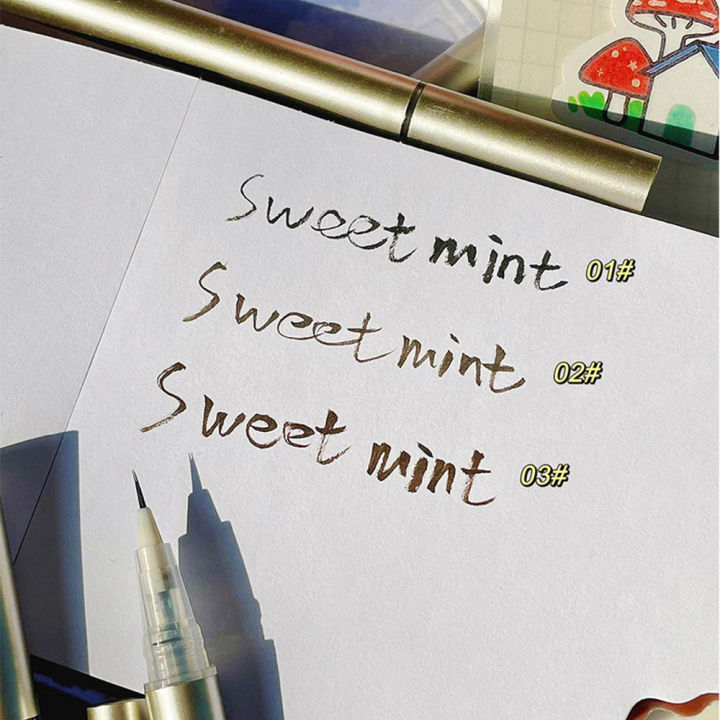 Sweet mint 01#
Sweet mint 02#
Sweet mint 03#